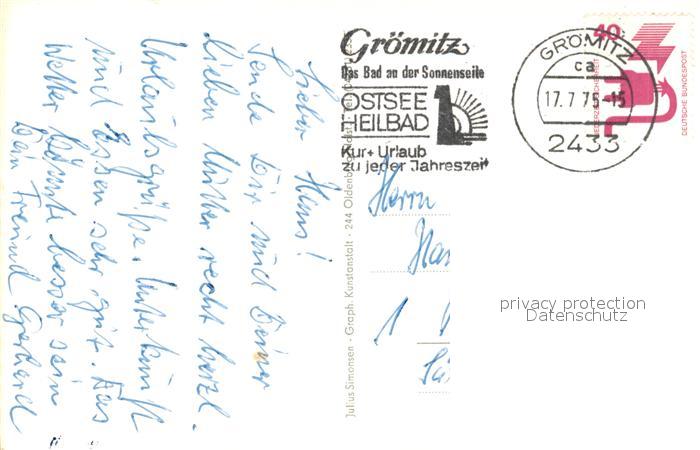 Lieber Hans!
Sende Dir und Deiner
lieben Mutter recht herzl.
Urlaubsgrüße. Unterkunft
und Essen sehr gut. Das
Wetter könnte besser sein
Dein Freund Gerhard
Grömitz
Das Bad an der Sonnenseite
OSTSEE
HEILBAD
Kur + Urlaub
zu jeder Jahreszeit
GRÖMITZ
ca
17.7.75-15
2433
40
JEDERZEIT SICHERHEIT
DEUTSCHE BUNDESPOST
Julius Simonsen - Graph. Kunstanstalt · 244 Oldenb
Herrn
Han
1
privacy protection
Datenschutz